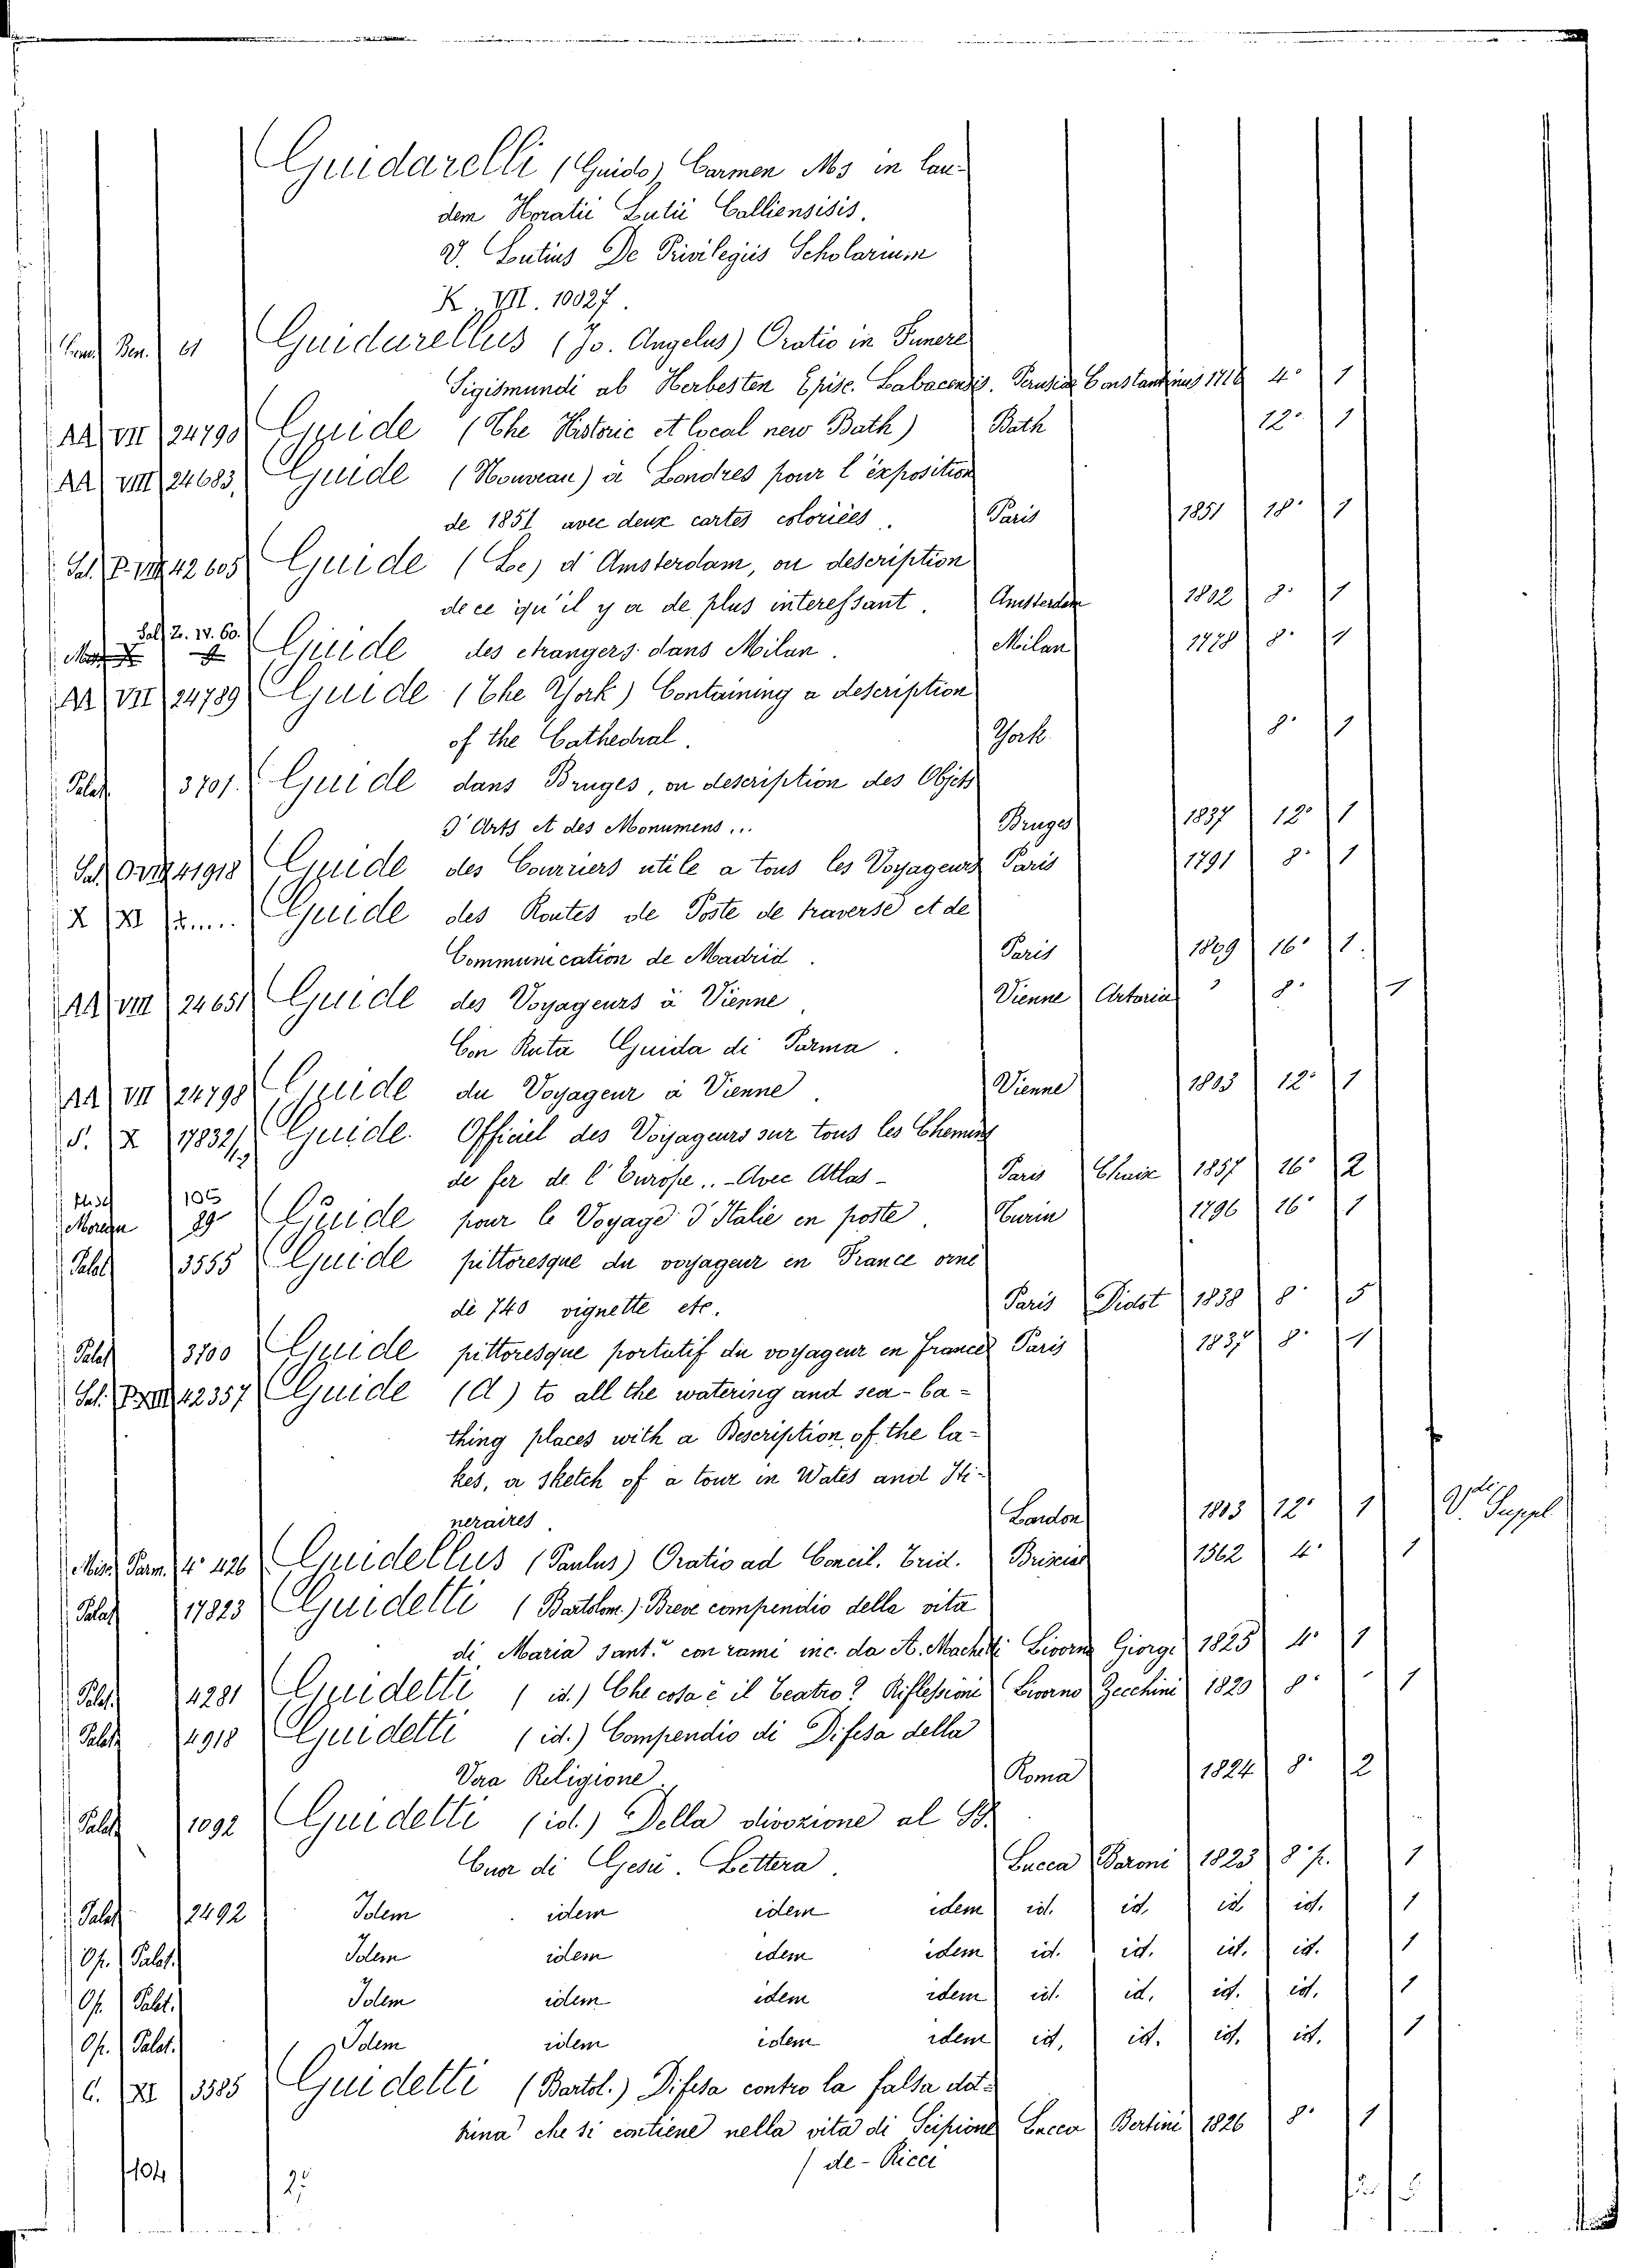 Guidarelli (Guido) Carmen Ms in lau-
dem Horatii Lutii Calliensisis.
V. Lutius De Privilegiis Scholarium
K. VII. 10027.
Ben. 61 Guidarellus (Jo. Angelus) Oratio in Funere
Sigismundi ab Herbesten Episc. Labacensis. Perusiæ Constantinus 1716 4° 1
AA VII 24790 Guide (The Historic et local new Bath) Bath 12° 1
AA VIII 24683, Guide (Nouveau) à Londres pour l'exposition
de 1851 avec deux cartes coloriées. Paris 1851 18° 1
Sal. P. VIII 42605 Guide (Le) d'Amsterdam, ou description
de ce qu'il y a de plus interessant. Amsterdam 1802 8° 1
Sal. Z. IV. 60. Guide des etrangers dans Milan. Milan 1778 8° 1
AA VII 24789 Guide (The York) Containing a description
of the Cathedral. York 8° 1
Palat. 3701. Guide dans Bruges, ou description des Objets
d'Arts et des Monumens... Bruges 1837 12° 1
Sal. O. VIII 41918 Guide des Courriers utile a tous les Voyageurs Paris 1791 8° 1
X XI Guide des Routes de Poste de traverse et de
Communication de Madrid. Paris 1809 16° 1.
AA VIII 24651 Guide des Voyageurs à Vienne Vienne Artaria 8° 1
Con Ruta Guida di Parma.
AA VII 24798 Guide du Voyageur à Vienne. Vienne 1803 12° 1
S. X 17832/ Guide Officiel des Voyageurs sur tous les Chemins
de fer de l'Europe.. - Avec Atlas - Paris Chaix 1857 16° 2
Moreau 105 89 Guide pour le Voyage d'Italie en poste. Turin 1796 16° 1
Palat 3555 Guide pittoresque du voyageur en France orné
de 740 vignette etc. Paris Didot 1838 8° 5
Palat 3700 Guide pittoresque portatif du voyageur en France Paris 1837 8° 1
Sal. P. XIII 42357 Guide (A) to all the watering and sea-ba-
thing places with a Bescription of the la-
kes, a sketch of a tour in Wates and Iti-
neraires. London 1803 12° 1 V. Suppl
Misc. Parm. 4° 426 Guidellus (Paulus) Oratio ad Concil. Trid. Brixiæ 1562 4° 1
Palat 17823 Guidetti (Bartolom.) Breve compendio della vita
di Maria Sant.ª con rami inc. da A. Machetti Livorno Giorgi 1825 4° 1
Palat. 4281 Guidetti (id.) Che cosa è il Teatro? Riflessioni Livorno Zecchini 1820 8° 1
Palat. 4918 Guidetti (id.) Compendio di Difesa della
Vera Religione. Roma 1824 8° 2
Palat. 1092 Guidetti (id.) Della divozione al S.
Cuor di Gesù. Lettera. Lucca Baroni 1823 8° p. 1
Palat 2492 Idem idem idem idem id. id. id. id. 1
Op. Palat. Idem idem idem idem id. id. id. id. 1
Op. Palat. Idem idem idem idem id. id. id. id. 1
Op. Palat. Idem idem idem idem id. id. id. id. 1
C. XI 3585 Guidetti (Bartol.) Difesa contro la falsa dot-
trina che si contiene nella vita di Scipione Lucca Bertini 1826 8° 1
/ de-Ricci
104